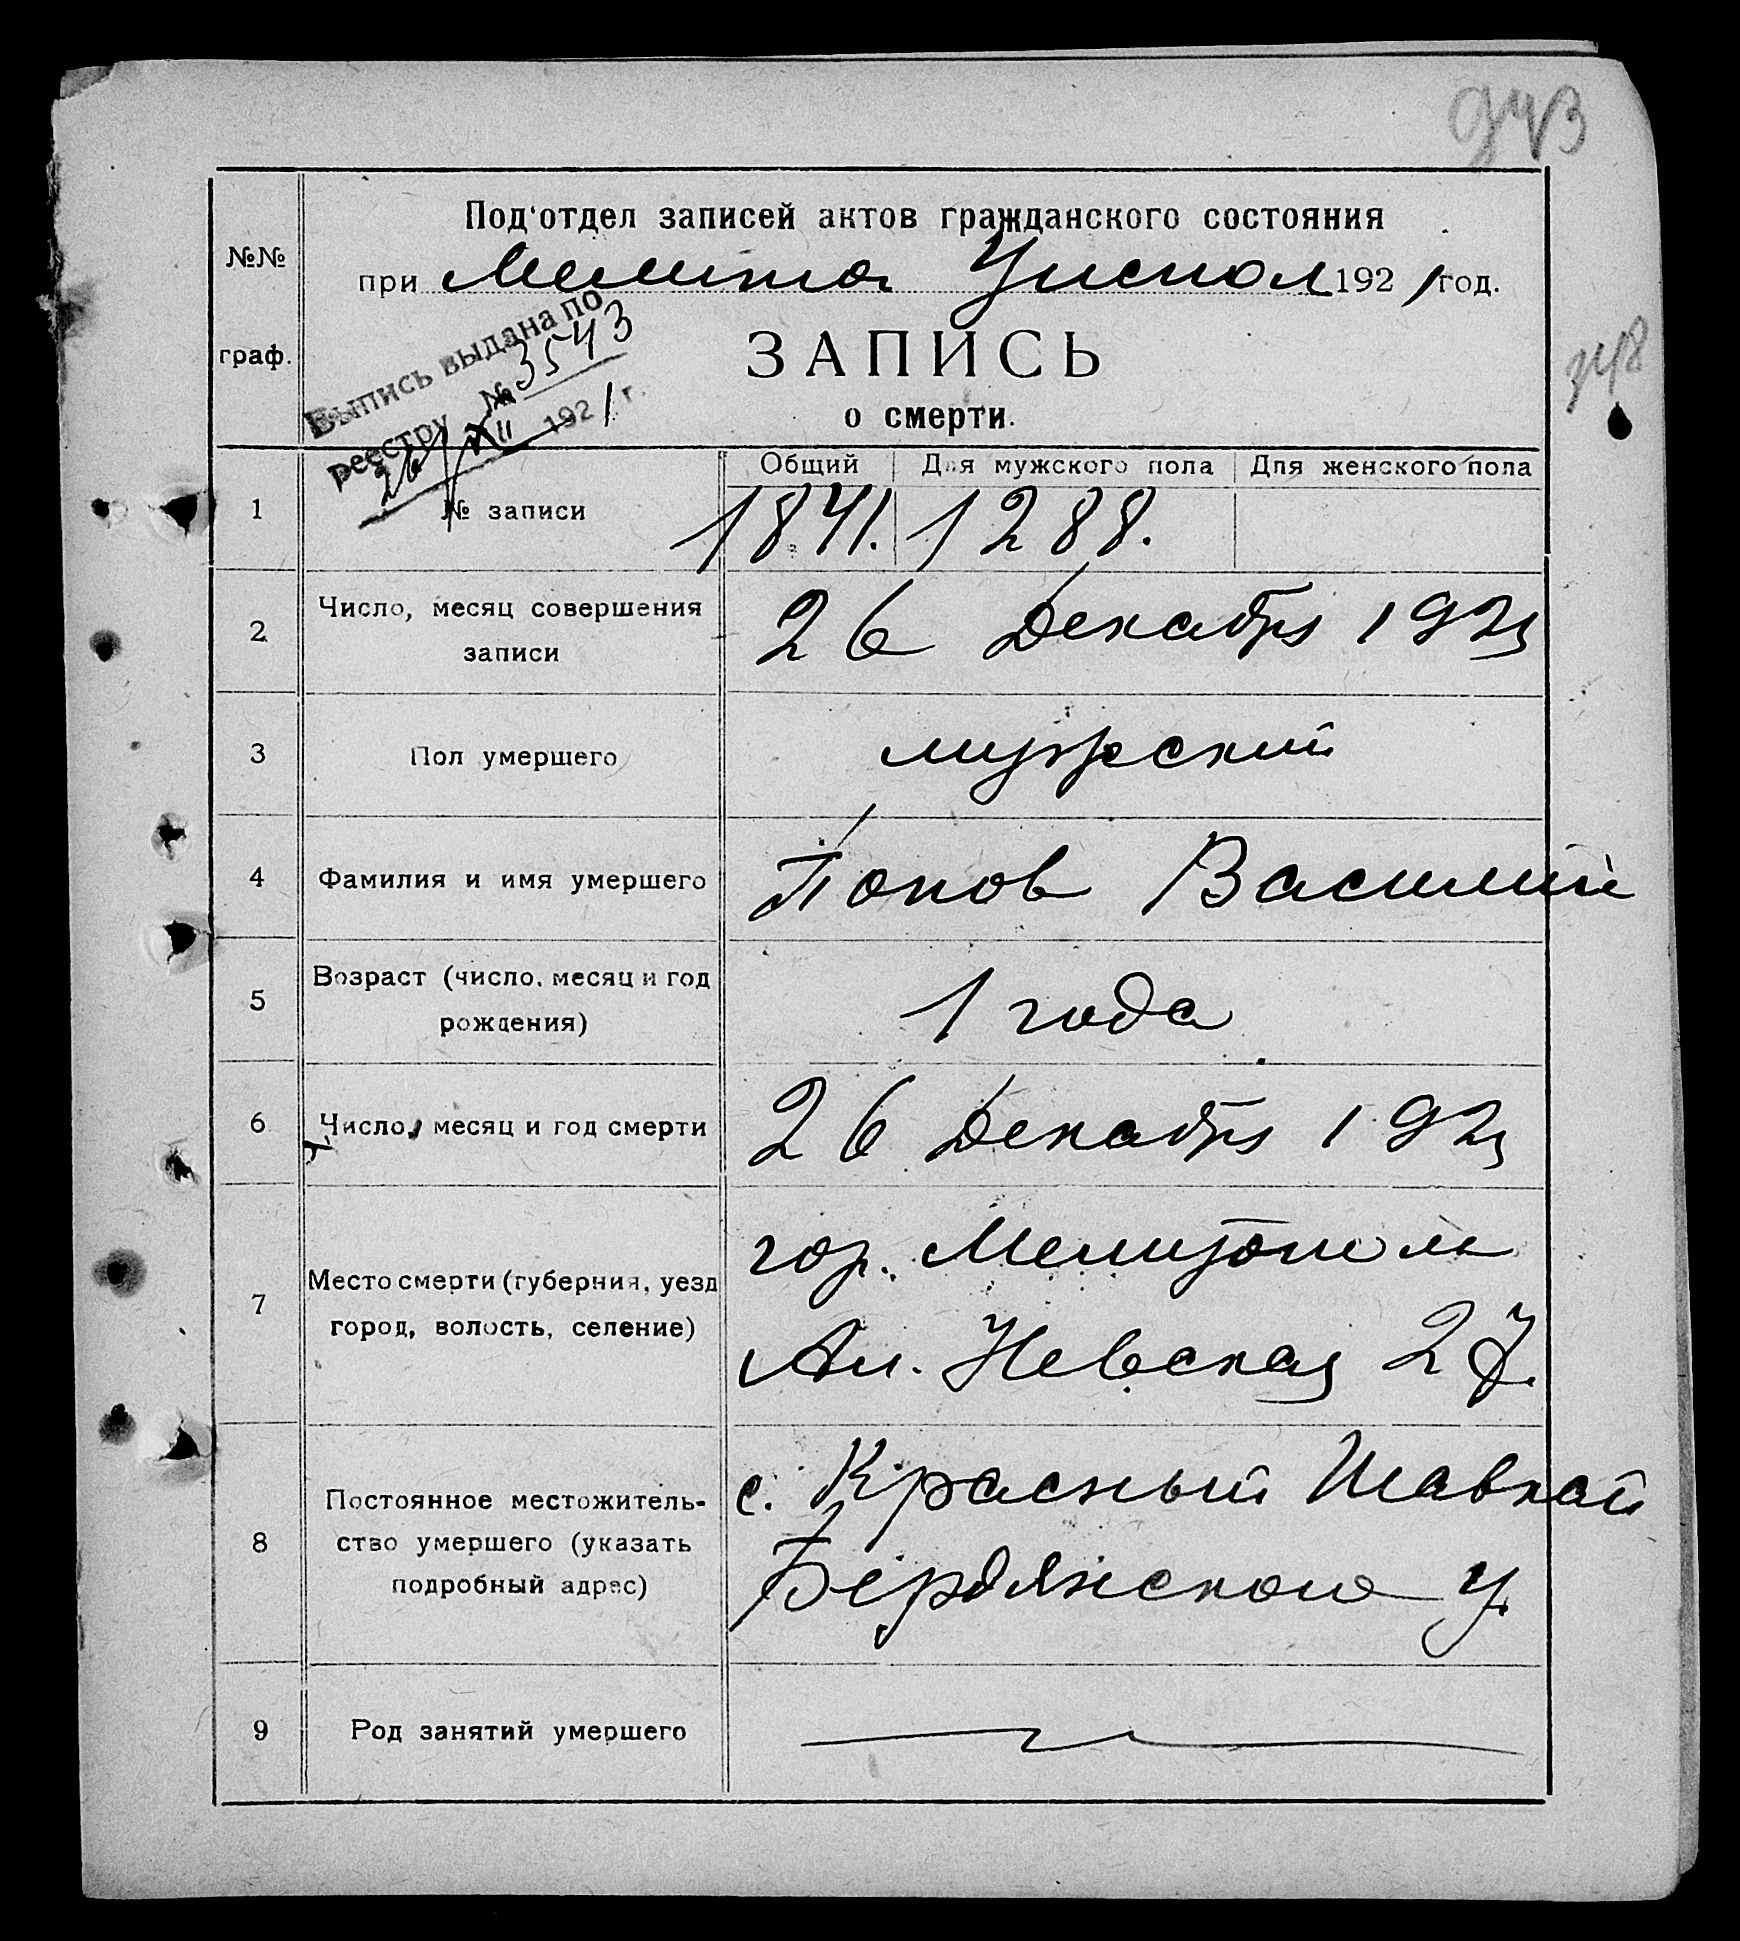 943
Под'отдел записей актов гражданского состояния
№№
при Мелит. Уиспол 1921 год.
Выпись выдана по
реестру № 3543
26/XII 1921 г.
граф.
ЗАПИСЬ
748
о смерти.
Общий Для мужского пола Для женского пола
1 № записи 1841. 1288.
2 Число, месяц совершения
записи
26 Декабря 1921
3 Пол умершего мужской
4 Фамилия и имя умершего Попов Василий
5 Возраст (число, месяц и год
рождения)
1 года
6 Число, месяц и год смерти 26 Декабря 1921
7 Место смерти (губерния, уезд
город, волость, селение)
гор. Мелитополь
Ал. Невская 27.
8 Постоянное местожитель-
ство умершего (указать
подробный адрес)
с. Красный
Бердянского у.
9 Род занятий умершего